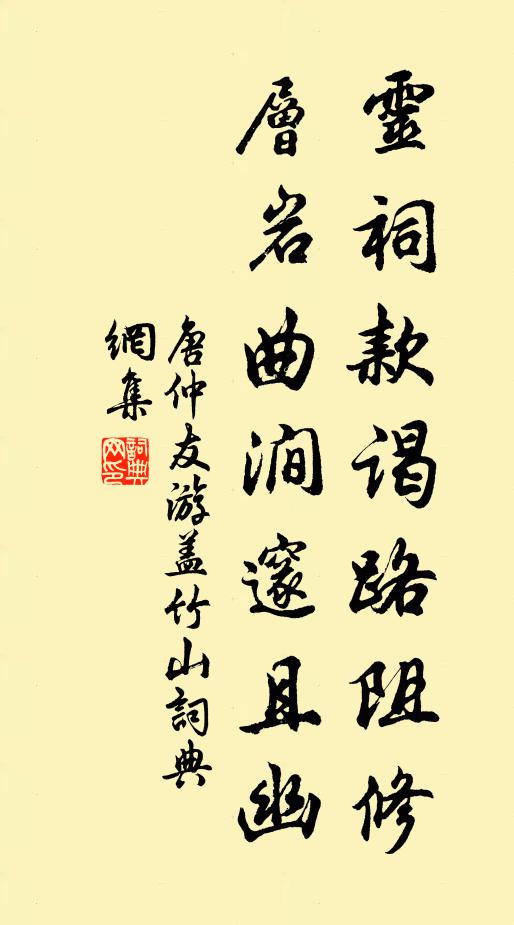 靈祠款谒路阻修
層岩曲澗邃且幽
唐仲友游盖竹山詞典
網集
詞典網印